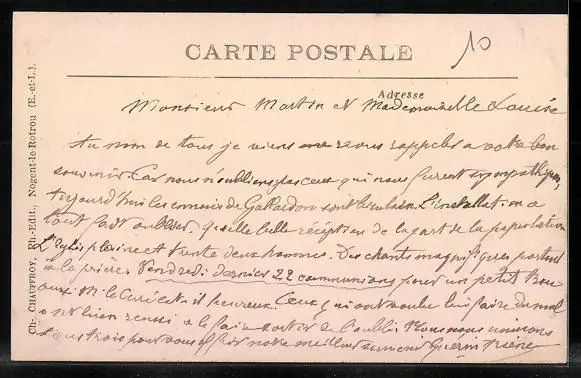 CARTE POSTALE
10
Adresse
Monsieur Martin et Mademoiselle Louise
Au nom de tous je viens me vous rappeler a votre bon
souvenir. Car nous n'oublions pas ceux qui nous furent sympathiques,
Aujourd'hui les ennuis de Gallardon sont bien loin. L'installation a
tout fait oublier. Quelle belle réception de la part de la population
L'Eglise pleine et trente deux hommes. Des chants magnifiques portant
a la prière. Vendredi dernier 22 communions pour un petit
aussi M. le Curé est-il heureux. Ceux qui ont voulu lui faire du mal
ont bien reussi a le faire sortir de l'oubli. Nous nous unissons
tous trois pour vous offrir notre meilleur souvenir Guérin
Ch. CHAUFFROY, Ph.-Edit., Nogent-le-Rotrou (E.-et-L.).